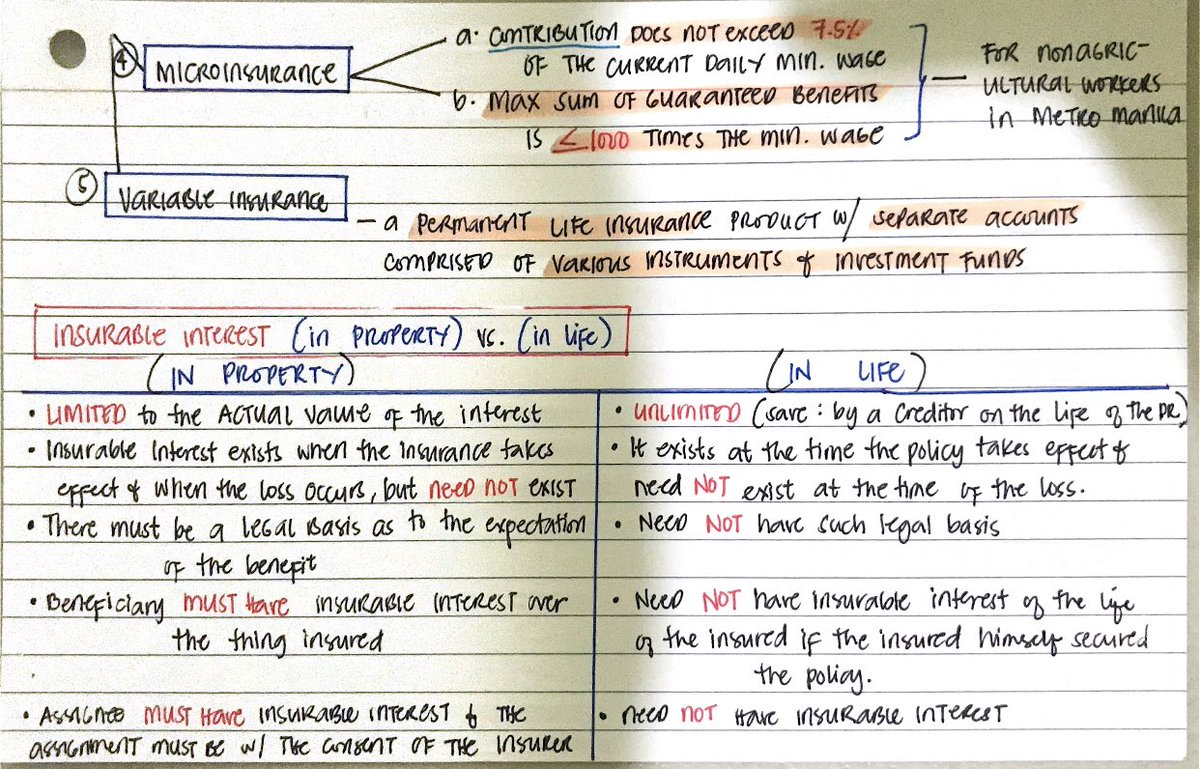 ④ MICROINSURANCE
a. CONTRIBUTION DOES NOT EXCEED 7.5%
OF THE CURRENT DAILY MIN. WAGE
b. MAX SUM OF GUARANTEED BENEFITS
IS ≤1000 TIMES THE MIN. WAGE
FOR NONAGRIC-
ULTURAL WORKERS
in METRO MANILA
⑤ VARIABLE INSURANCE
- a PERMANENT LIFE INSURANCE PRODUCT w/ SEPARATE ACCOUNTS
COMPRISED OF VARIOUS INSTRUMENTS & INVESTMENT FUNDS
INSURABLE INTEREST (in PROPERTY) vs. (in life)
(IN PROPERTY)
• LIMITED to the ACTUAL value of the interest
• Insurable Interest exists when the insurance takes
effect & when the loss occurs, but need NOT EXIST
• There must be a legal Basis as to the expectation
of the benefit
• Beneficiary MUST Have INSURABLE INTEREST over
the thing insured
• ASSIGNEE MUST Have INSURABLE INTEREST & THE
ASSIGNMENT MUST BE w/ THE CONSENT OF THE INSURER
(IN LIFE)
• UNLIMITED (save: by a creditor on the life of the DR)
• It exists at the time the policy takes effect &
need NOT exist at the time of the loss.
• Need NOT have such legal basis
• Need NOT have insurable interest of the life
of the insured if the insured himself secured
the policy.
• need NOT Have INSURABLE INTEREST